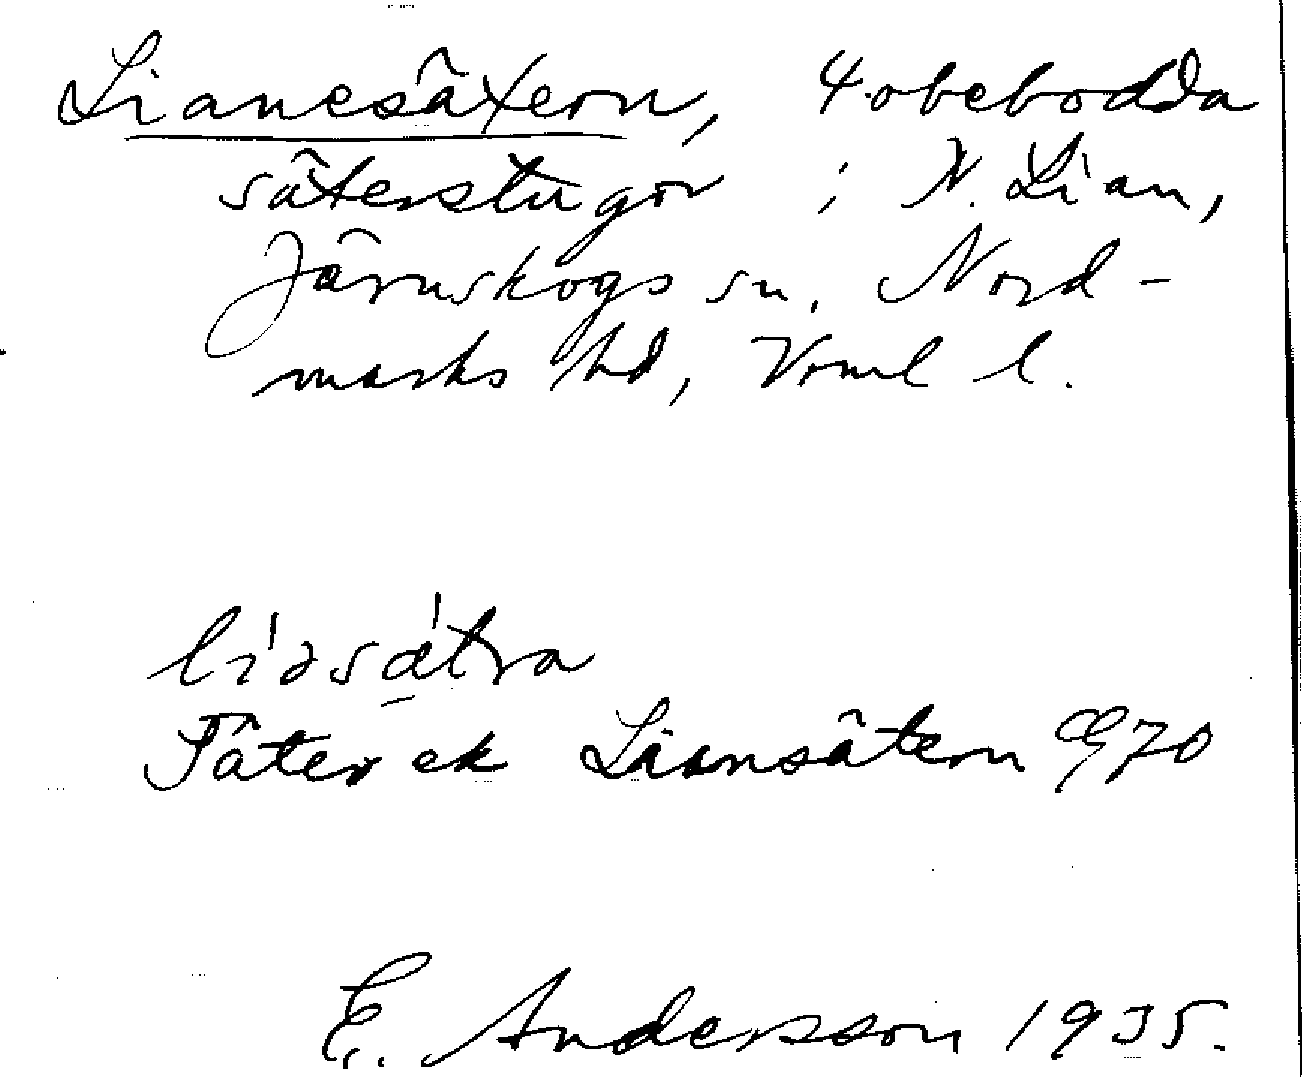 Lianesätern, 4 obebodda
säterstugor i N. Lian,
Järnskogs sn, Nord-
marks hd, Vrml l.
li'əsa̠'tra
Säter ek Liansätern GK 70
E. Andersson 1935.